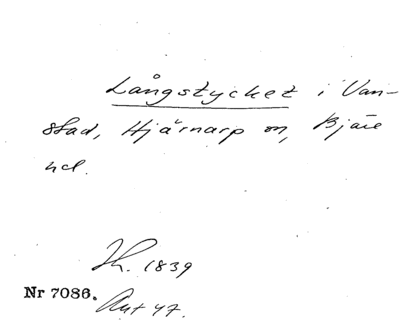 Långstycket i Van-
stad, Hjärnarp sn, Bjäre
hd.
Jh. 1839
Nr 7086.
Akt 47.